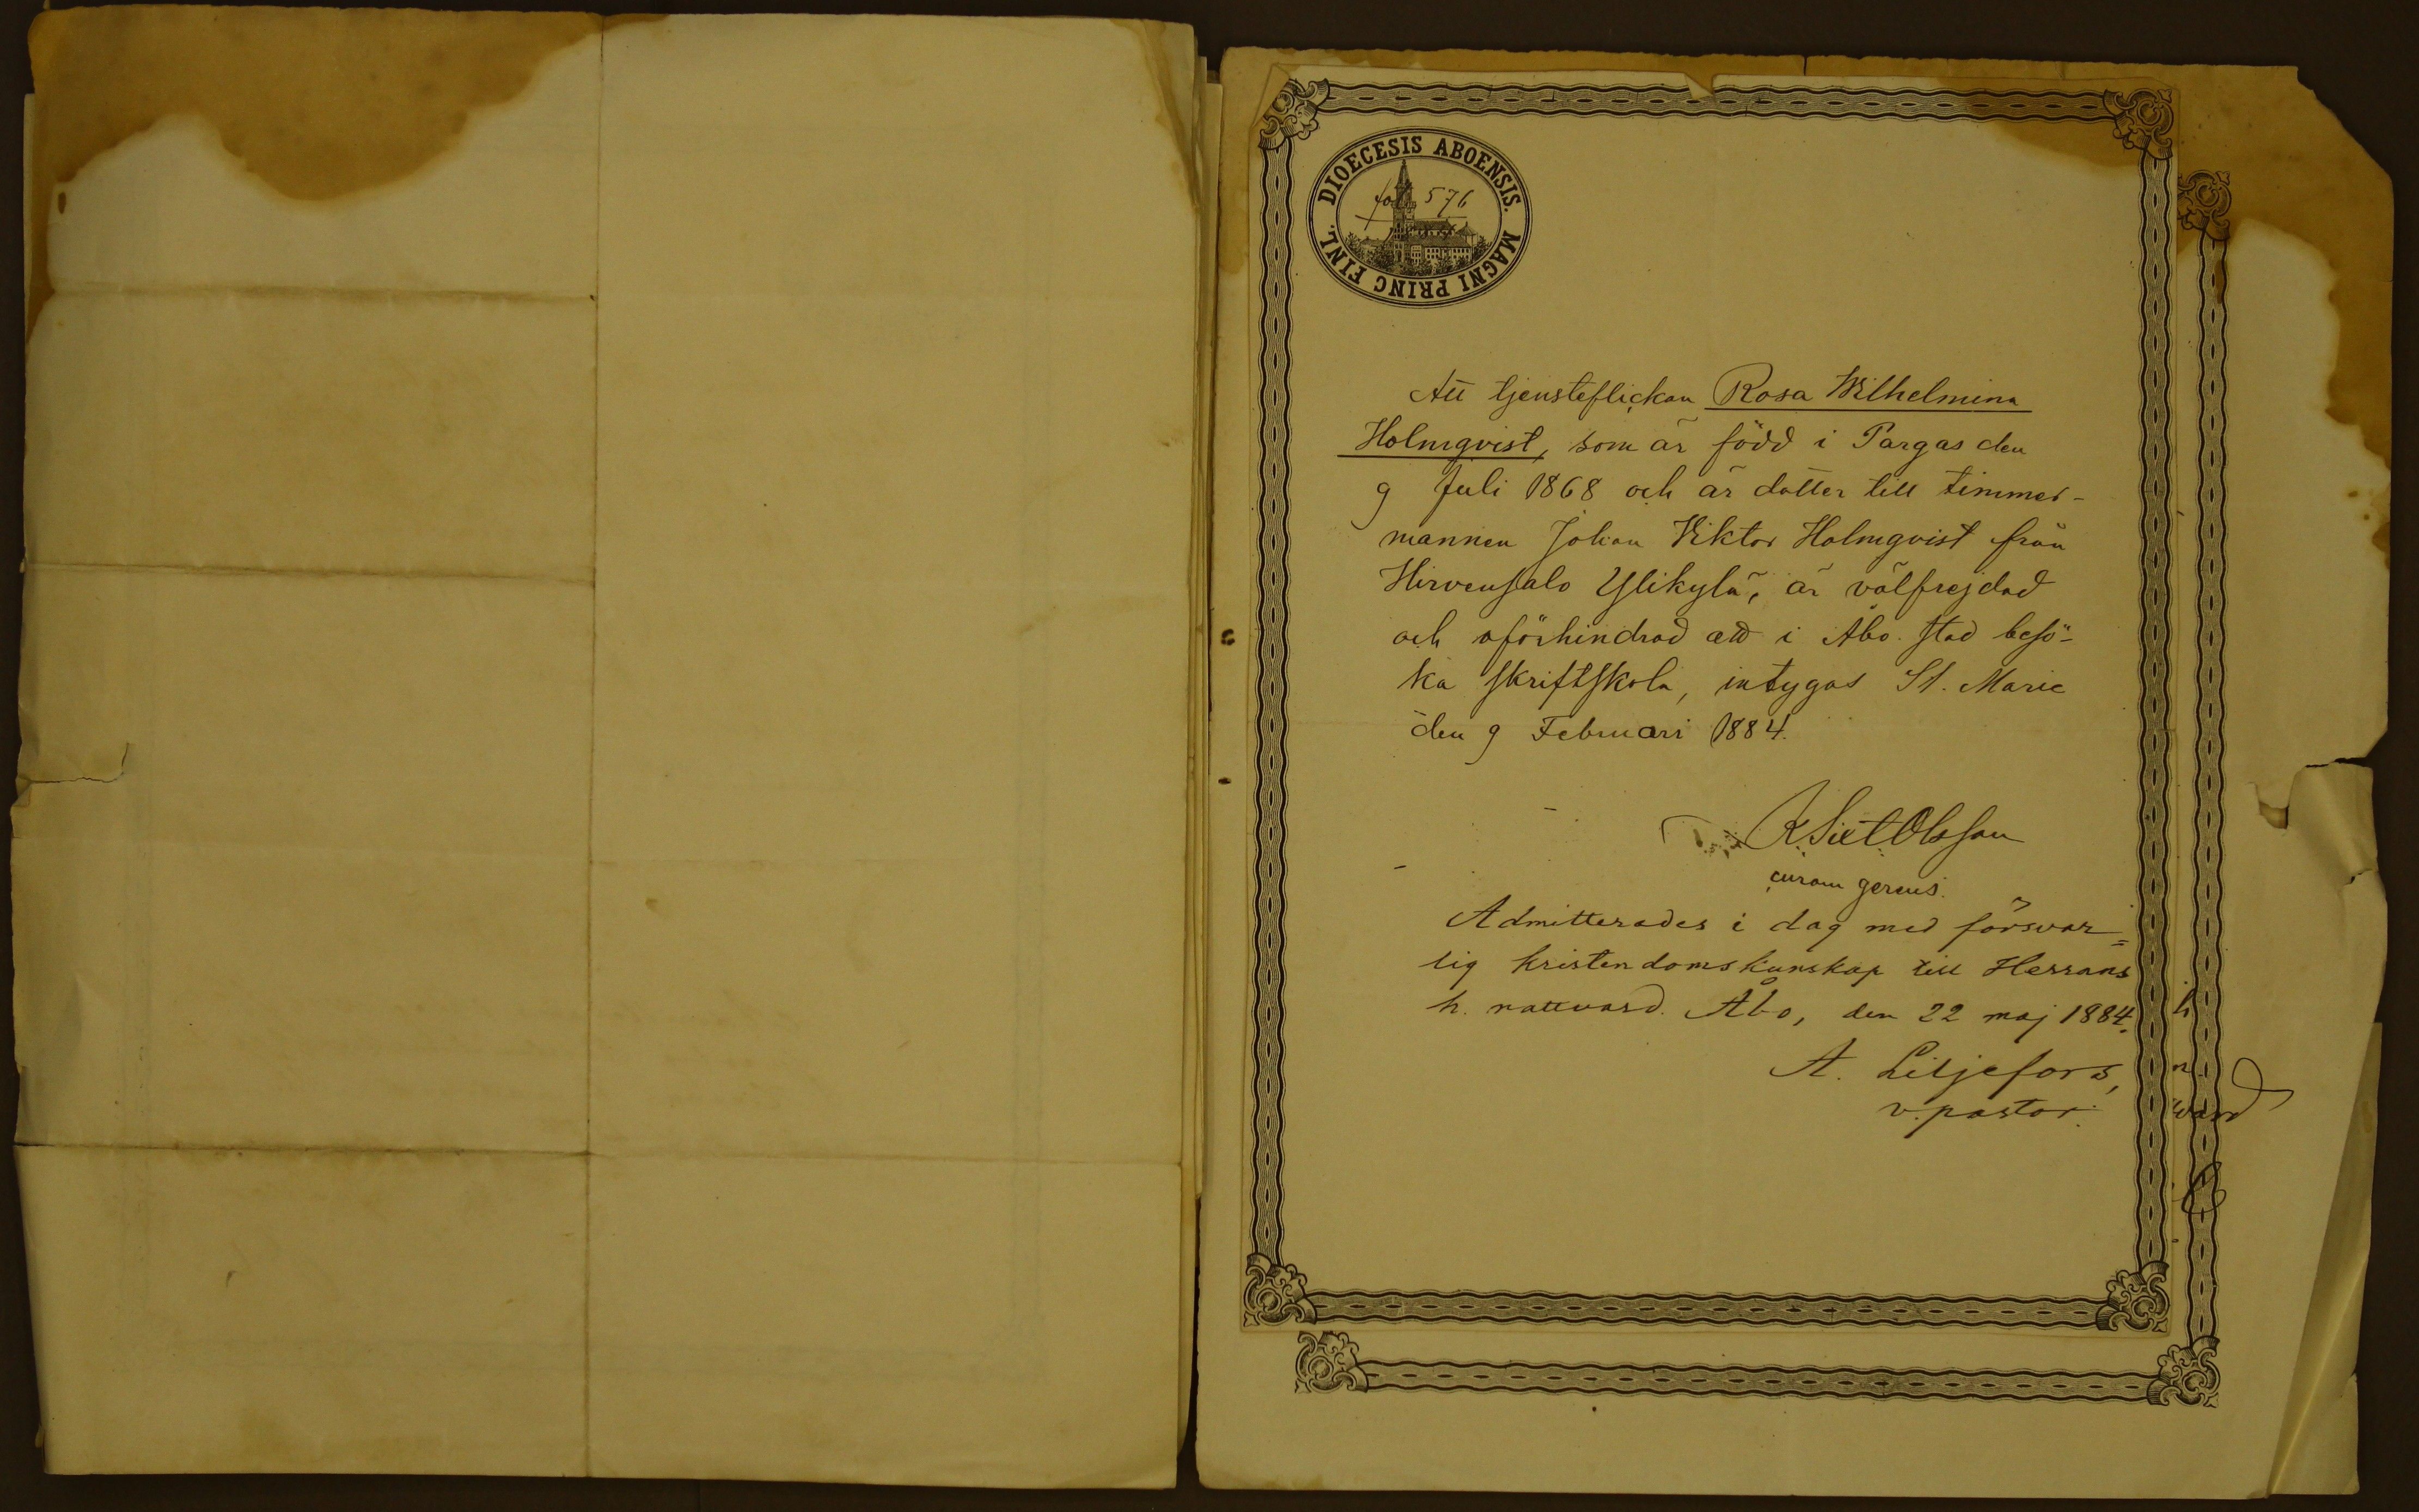 DIOECESIS ABOENSIS. MAGNI PRINC FINL.
fol 576
Att tjensteflickan Rosa Wilhelmina
Holmqvist, som är född i Pargas den
9 Juli 1868 och är dotter till timmer-
mannen Johan Viktor Holmqvist från
Hirvensalo Ylikylä, är välfrejdad
och oförhindrad att i Åbo stad besö-
ka skriftskola, intygas St. Marie
den 9 Februari 1884.
Olsson
curam gerens.
Admitterades i dag med försvar=
lig kristendomskunskap till Herrans
h. nattvard. Åbo, den 22 maj 1884.
A. Liljefors,
v. pastor.
h
n
ward